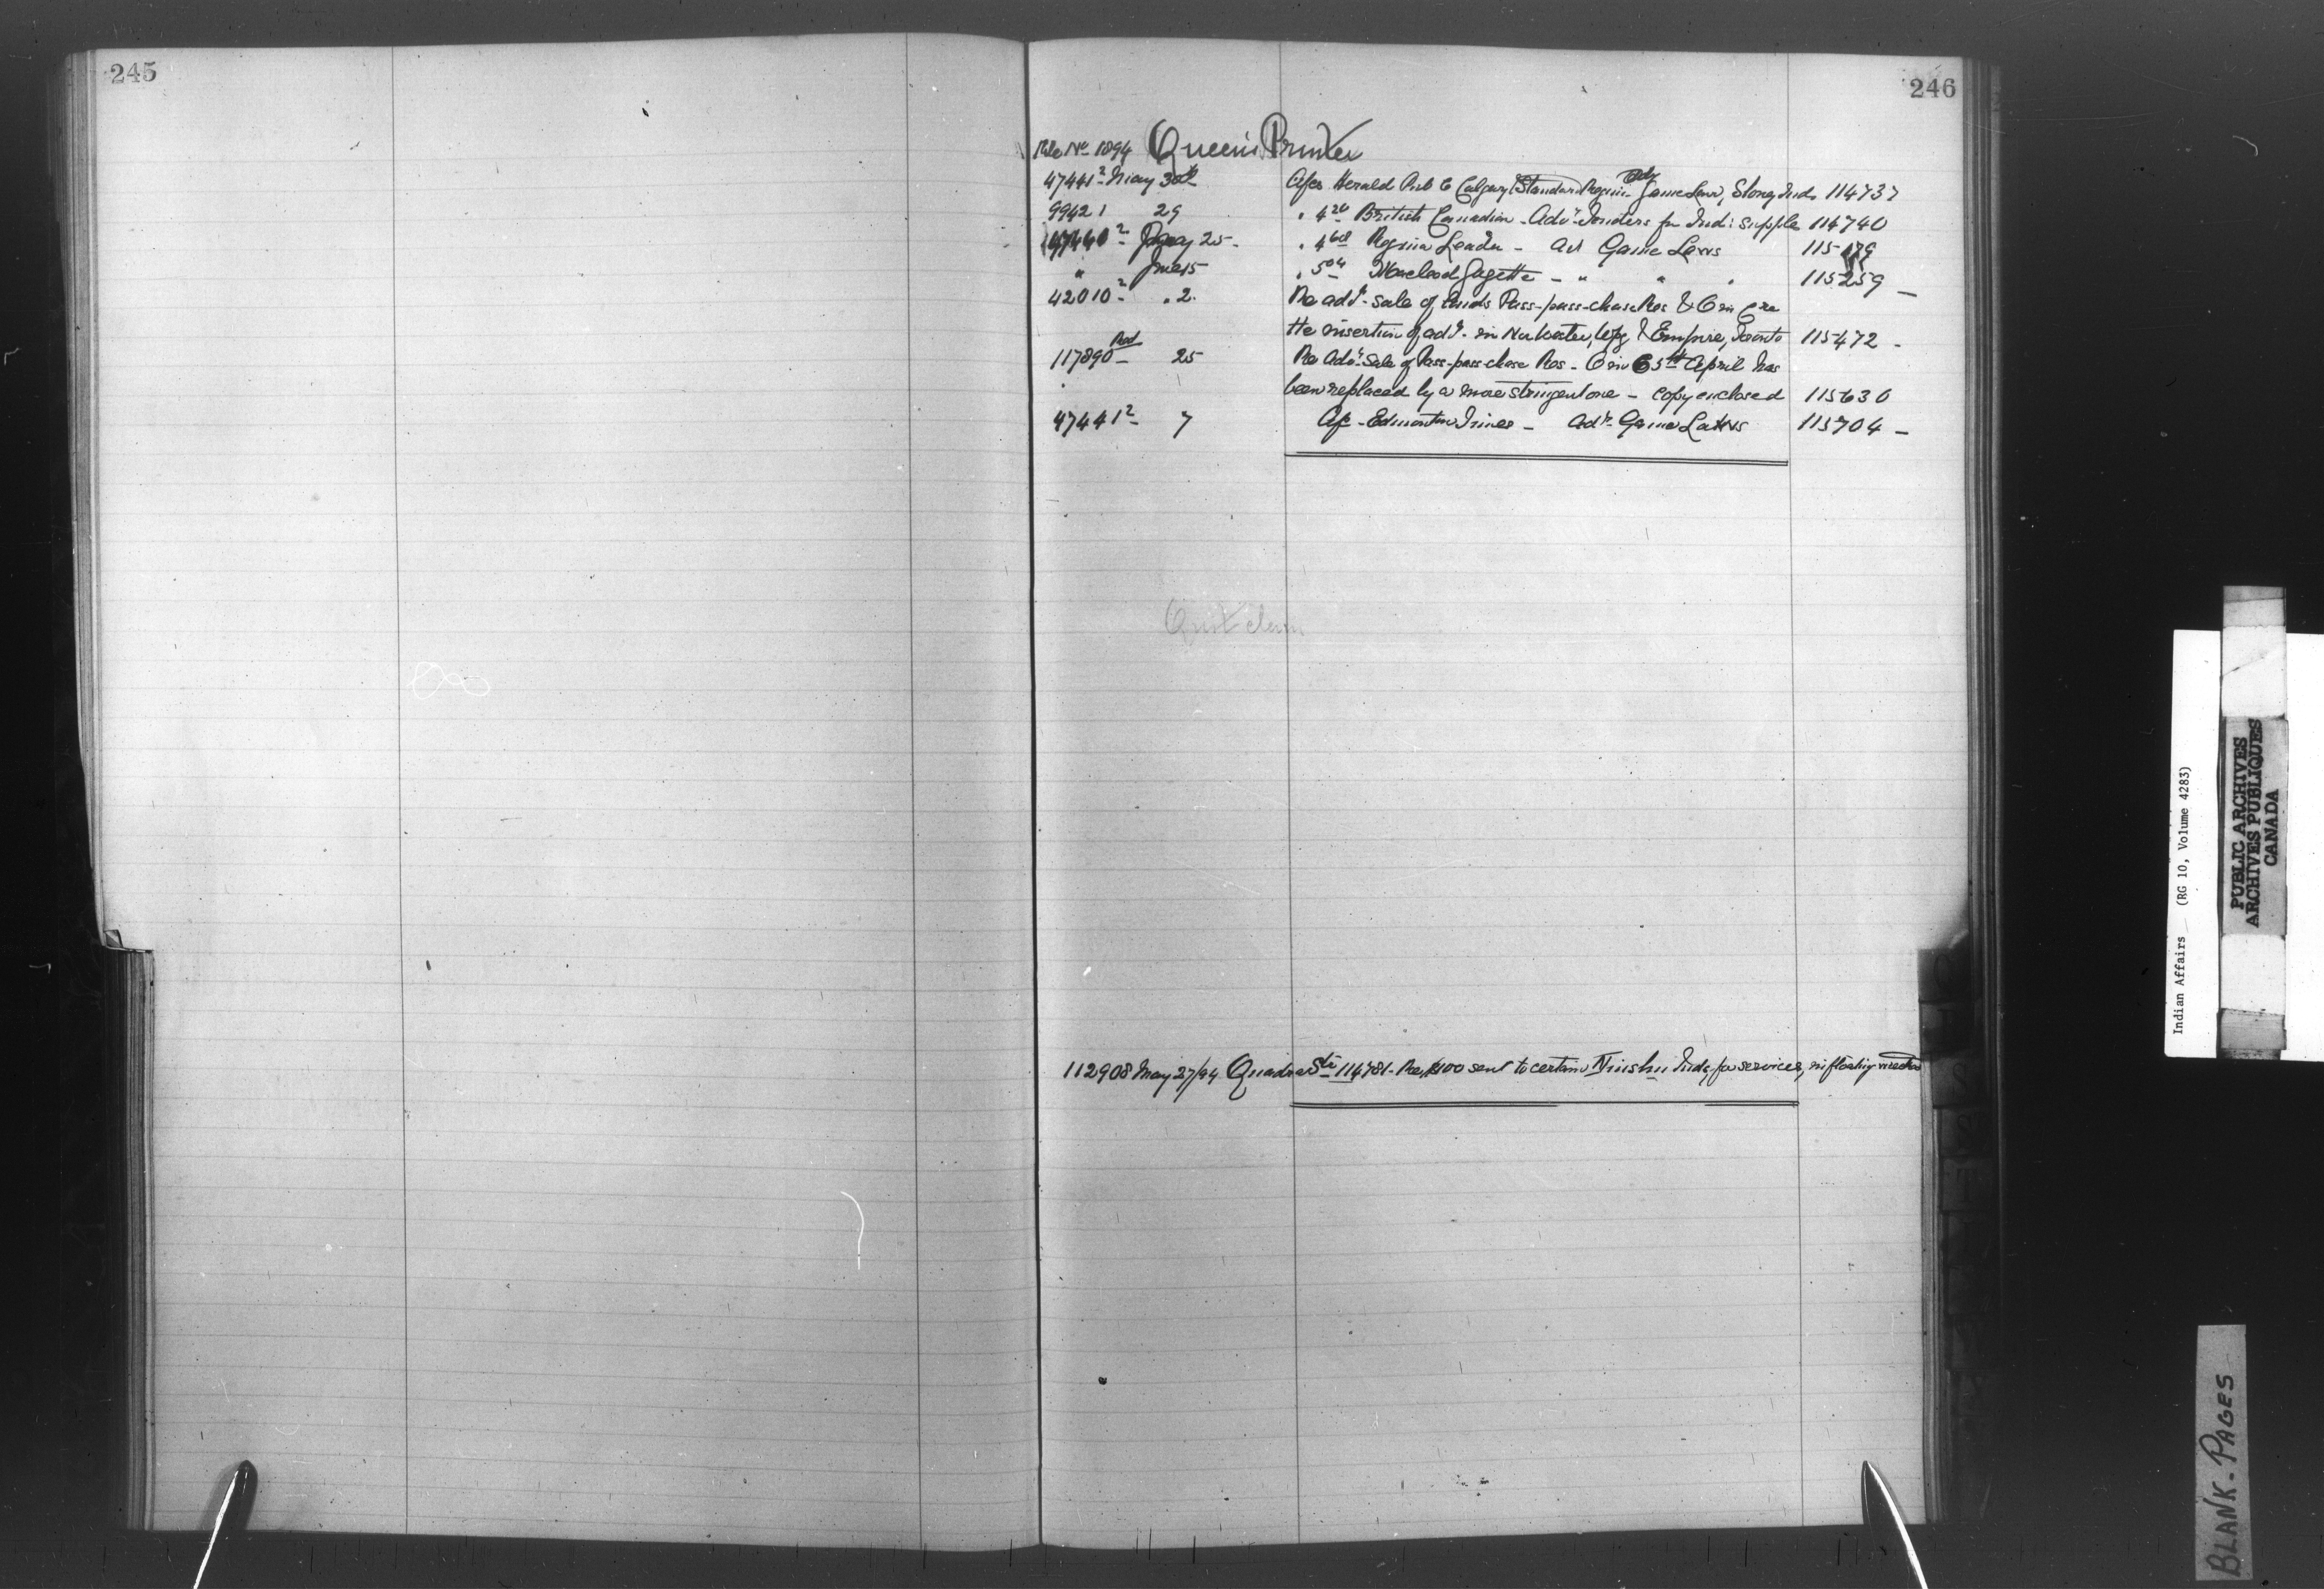 245
246
File No 1894 Queen's Printer
47441² May 30th A/cs Herald Pub Co Calgary (Standard Regina Adv Game Law, Stoney Inds 114737
99421 29 " 4 20 British Canadian - Advt Tenders for Ind: Supplies 114740
47440² May 25 - " 4 68 Regina Leader - Ad Game Laws 115179
" June 15 " 5 04 Macleod Gazette - " " " 115259 -
42010² " 2. Re advt - sale of Pass-pass-chase Res &
the insertion of advt. in Nor'wester, Wpg & Empire, Toronto 115472 -
117890 - Red 25 Re Advt. Sale of Pass-pass-chase Res - O in C 5th April has
been replaced by a more stringent one - copy enclosed 115636
47441² - 7 A/c - Edmonton Times - Advt. Game Laws 115704 -
Quit claim
112908 May 27/94 Quadra Str 114781 - Re $100 sent to certain Inds, for services, in floating
Indian Affairs (RG 10, Volume 4283)
PUBLIC ARCHIVES
ARCHIVES PUBLIQUES
CANADA
BLANK-PAGES